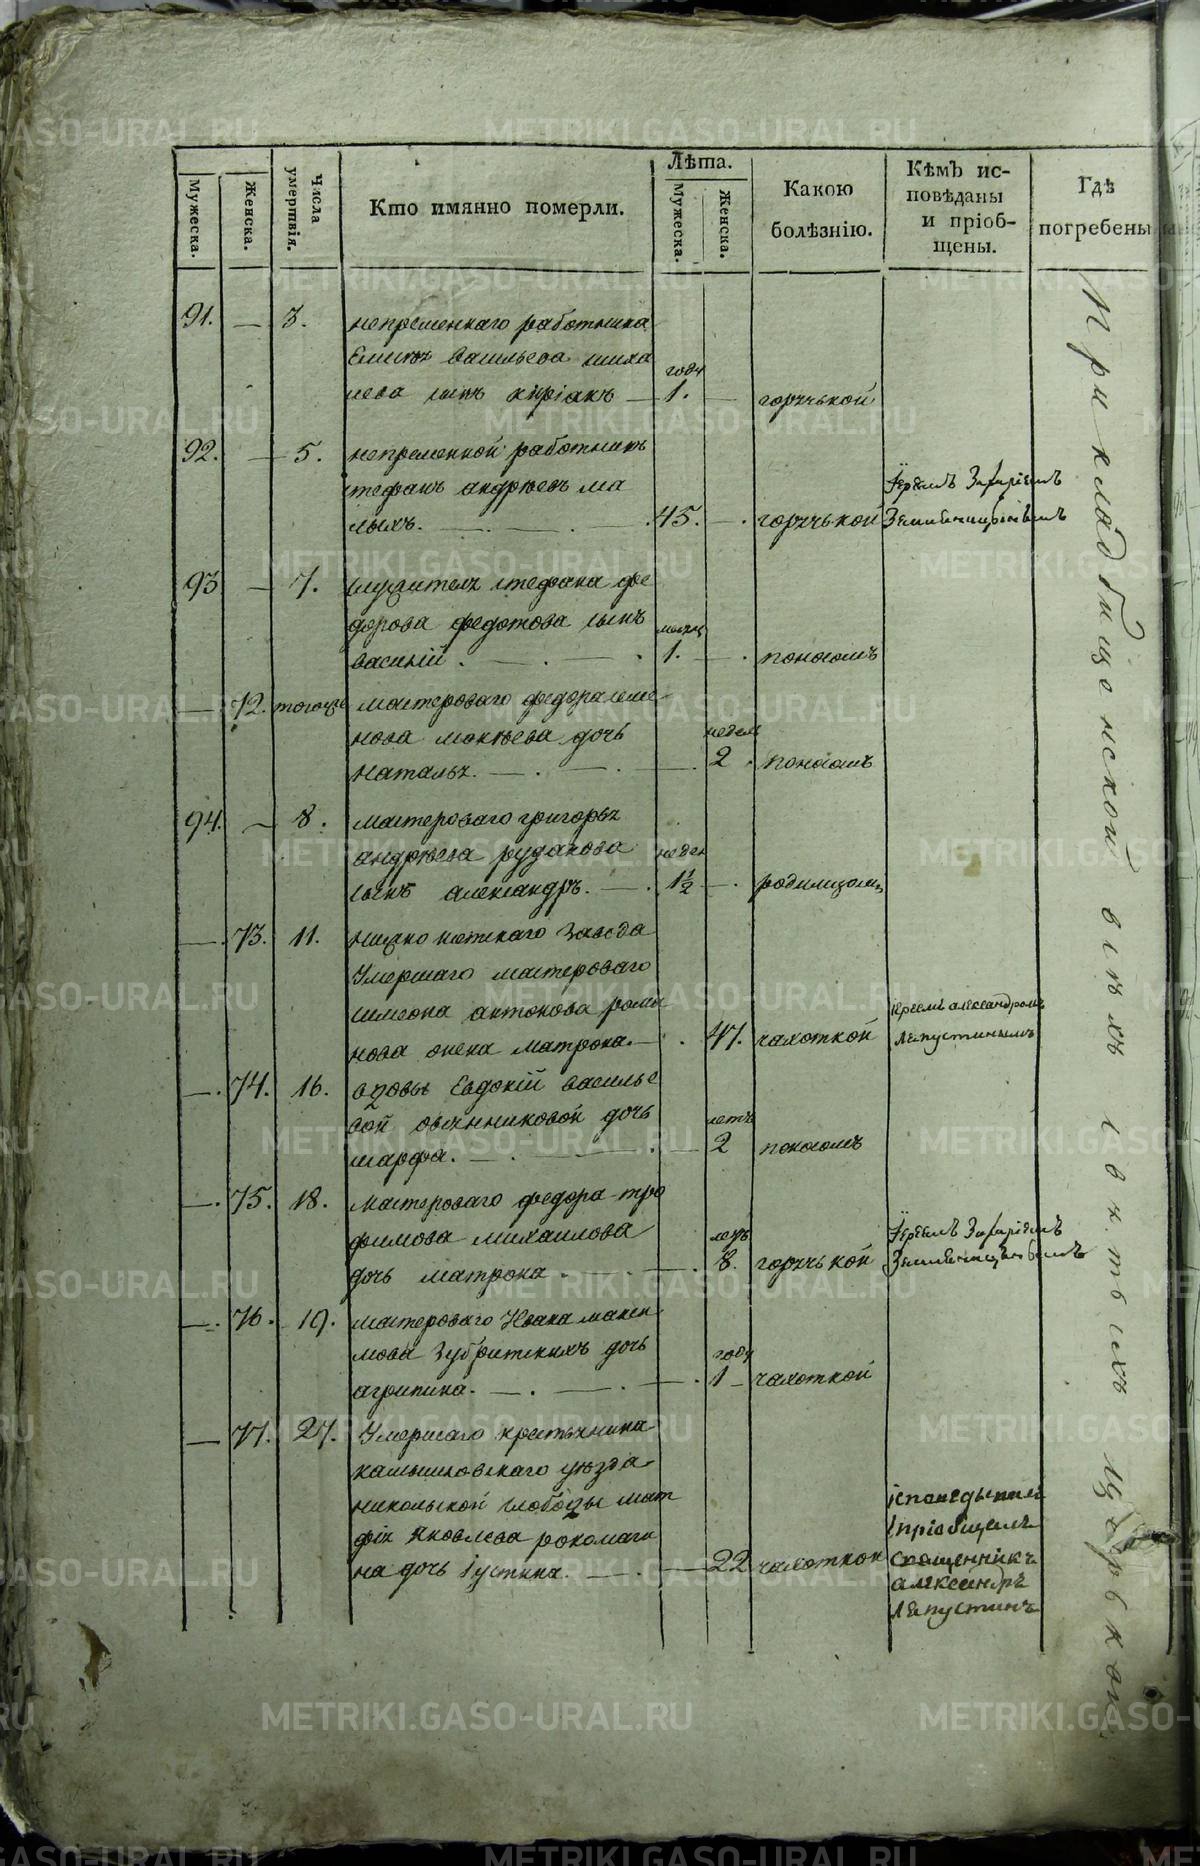 Мужеска.
Женска.
Числа умертвія.
Кто имянно померли.
Лѣта.
Мужеска.
Женска.
Какою болѣзнію.
Кѣмъ исповѣданы и пріобщены.
Гдѣ погребены
91. — 3. непременнаго работника
василева
сынъ киріакъ — году 1. — горячькой
92. — 5. непременной работникъ
стефанъ андрѣевъ ма
лыхъ. — 45. — горячькой Іереемъ Захаріемъ
93 — 7. служителя стефана фе
дорова федотова сынъ
василій. — месяц 1. — поносомъ
— 72. тогоже мастероваго федора семе
нова мокѣева дочь
наталья. — недель 2. поносомъ
94. — 8. мастероваго григорья
андрѣева рудакова
сынъ александръ. — недел 1½ — родимцомъ
— 73. 11. завода
умершаго мастероваго
симеона антонова рома
нова жена матрона. — 47. чахоткой іереемъ александромъ
Лепустинымъ
— 74. 16. вдовы Евдокіи василье
вой овчинниковой дочь
марфа. — летъ 2 поносомъ
— 75. 18. мастероваго федора тро
фимова михаилова
дочь матрона — летъ 8. горячькой Іереемъ Захаріемъ
— 76. 19. мастероваго Ивана макси
мова Зубритскихъ дочь
агрипина. — году 1 — чахоткой
— 77. 27. Умершаго крестьянина
камышловскаго уезда
никольской слободы мат
фія Яковлева
на дочь іустина. — 22 чахоткой
исповедывалъ
и пріобщалъ
священникъ
александръ
Лепустинъ
При кладбищонской всехъ святыхъ церькви
METRIKI.GASO-URAL.RU